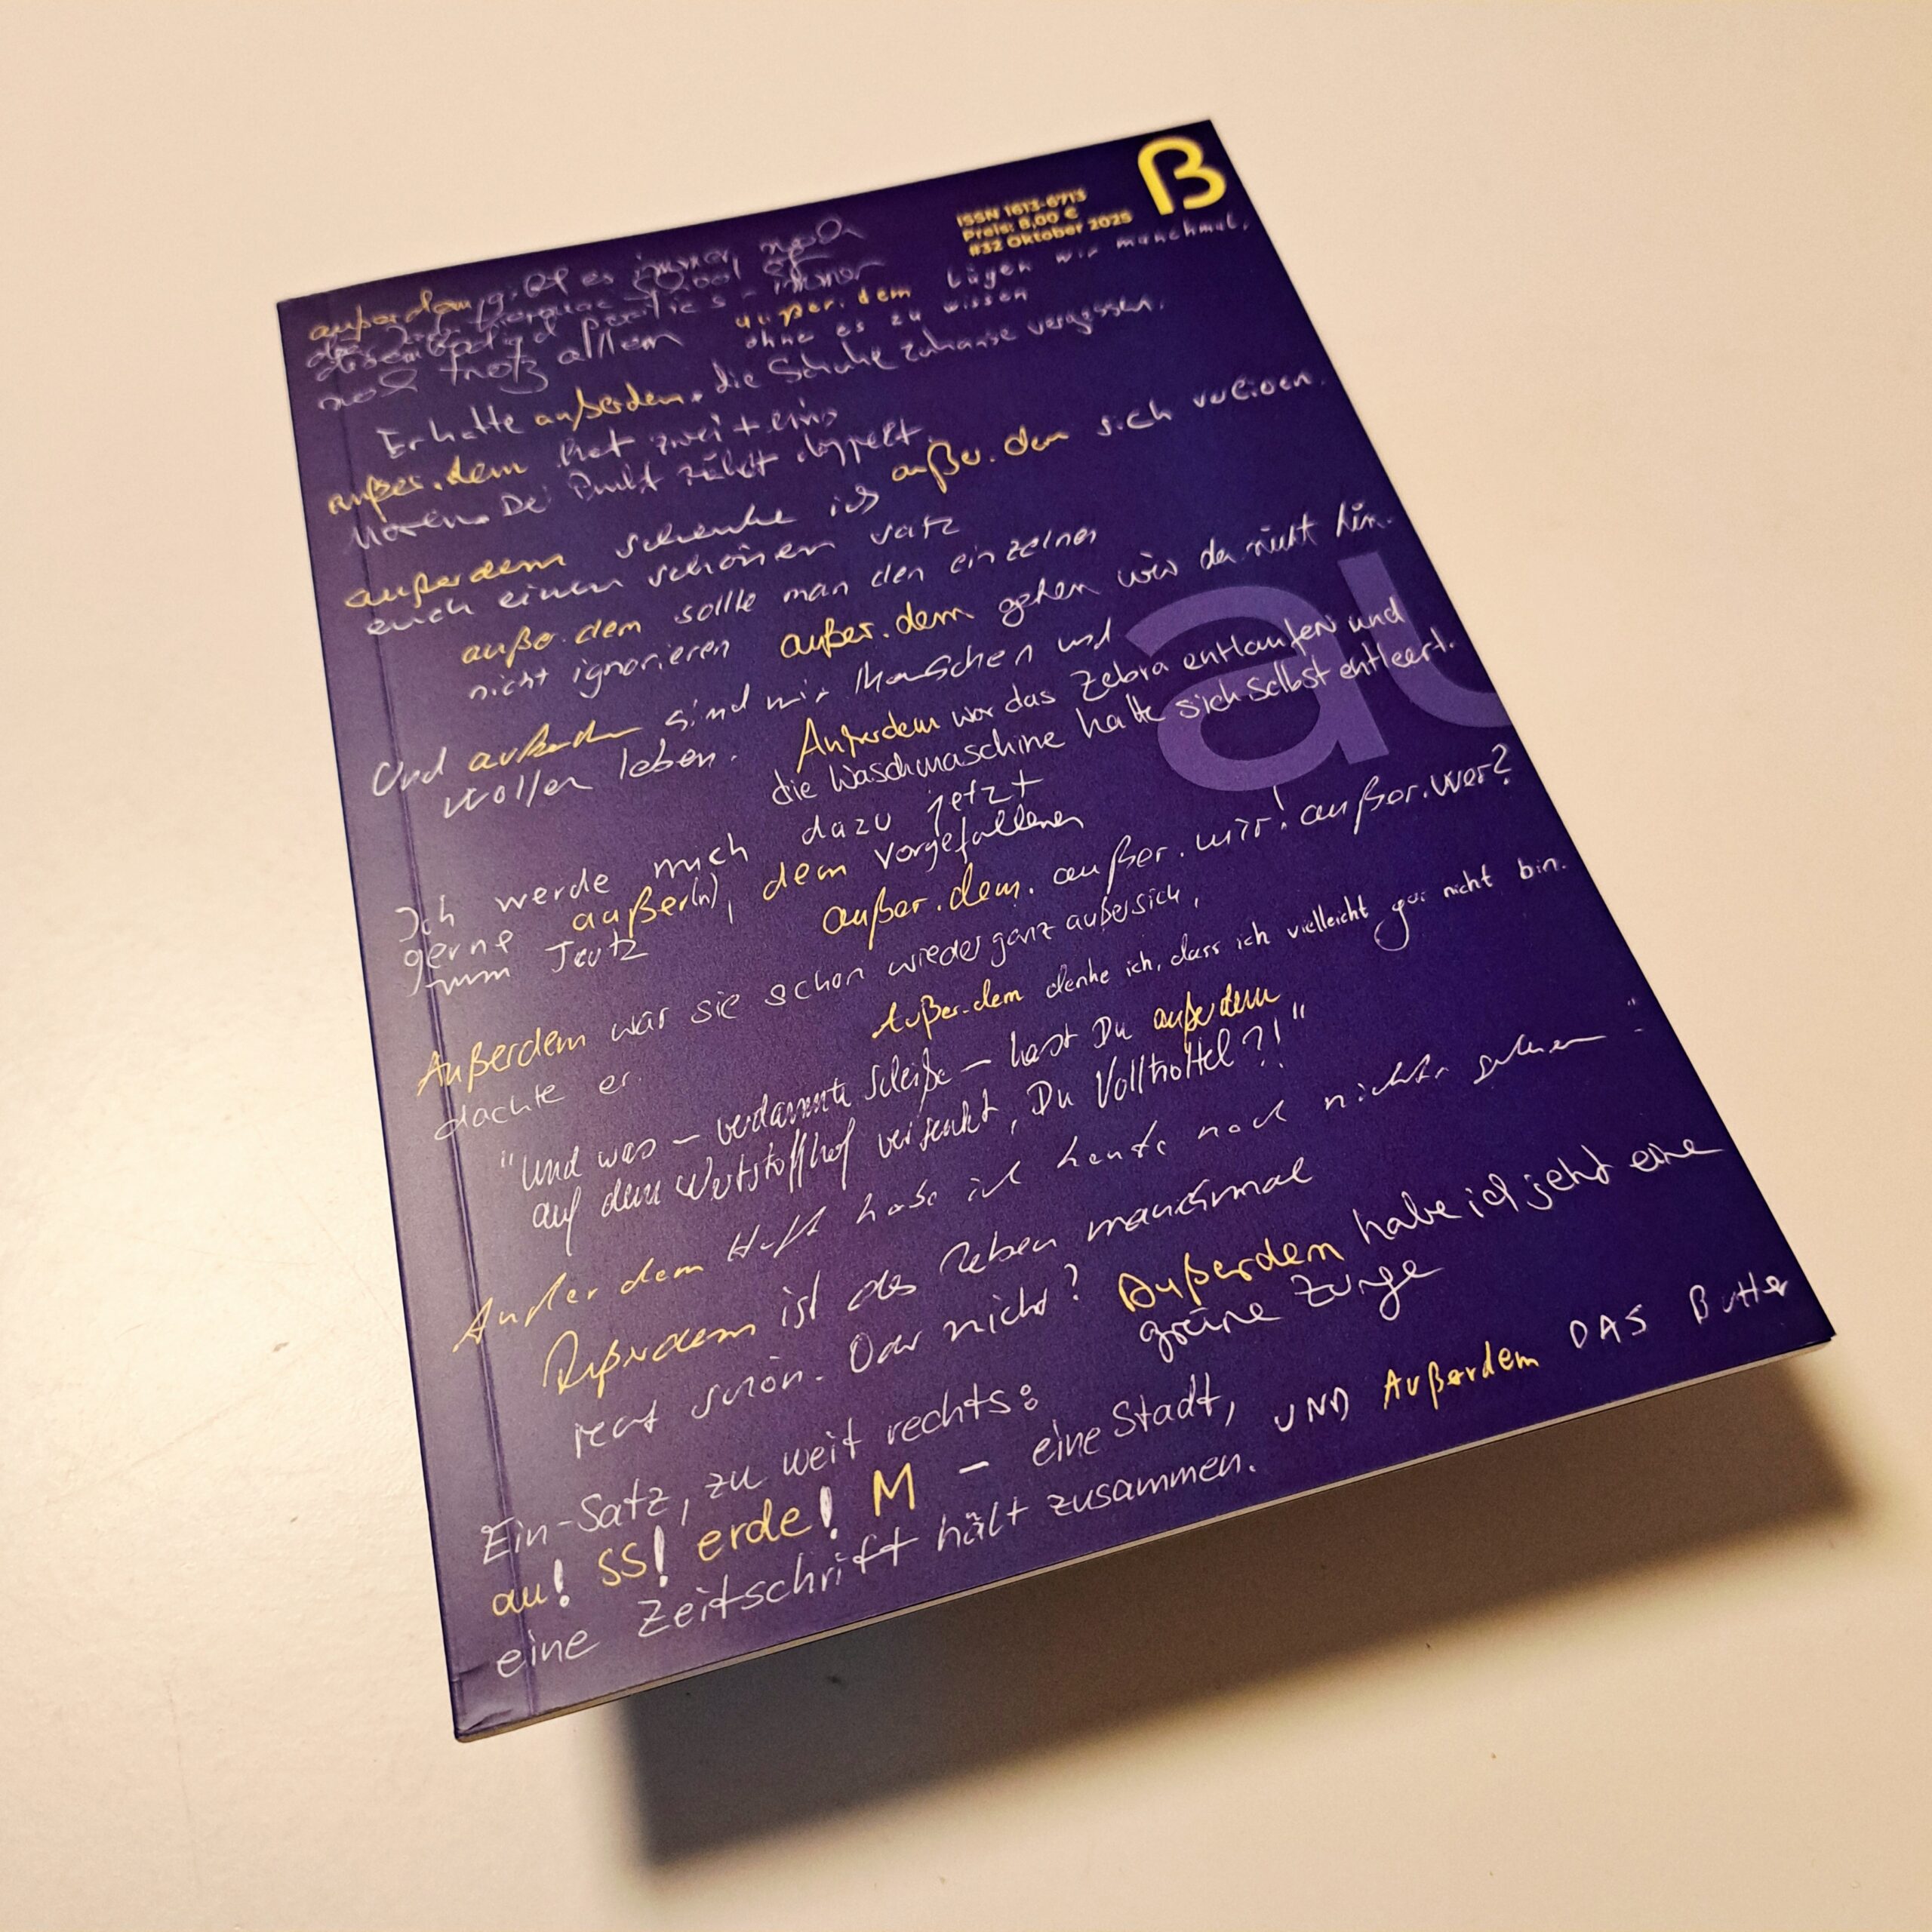 ß
ISSN 1613-6713
Preis: 8,00 €
#32 Oktober 2025
außerdem gibt es immer noch
noch trotz allem
außer.dem lügen wir manchmal,
ohne es zu wissen
Er hatte außerdem die Schuhe zuhause vergessen.
außer.dem hat zwei + eins
Der Punkt zählt doppelt.
außer.dem sich verlieren.
außerdem schenke ich
euch einen schönen satz
außer.dem sollte man den einzelnen
nicht ignorieren
außer.dem gehen wir da nicht hin.
au
Und außerdem sind wir Menschen und
wollen leben.
Außerdem war das Zebra entlaufen und
die Waschmaschine hatte sich selbst entleert.
Ich werde mich dazu jetzt
gerne außer(n), dem Vorgefallenen
zum Trutz
außer.dem. außer.mir! außer.wer?
Außerdem war sie schon wieder ganz außersich,
dachte er.
Außer.dem denke ich, dass ich vielleicht gar nicht bin.
"Und was – verdammte Scheiße – hast Du außerdem
auf dem Wertstoffhof versenkt, Du Volltrottel?!"
Außer dem Heft habe ich heute noch nichts gelesen
Außerdem ist das Leben manchmal
recht schön. Oder nicht?
Außerdem habe ich jetzt eine
grüne Zunge
Ein-Satz, zu weit rechts:
au! SS! erde! M – eine Stadt,
eine Zeitschrift hält zusammen.
UND Außerdem DAS Butter